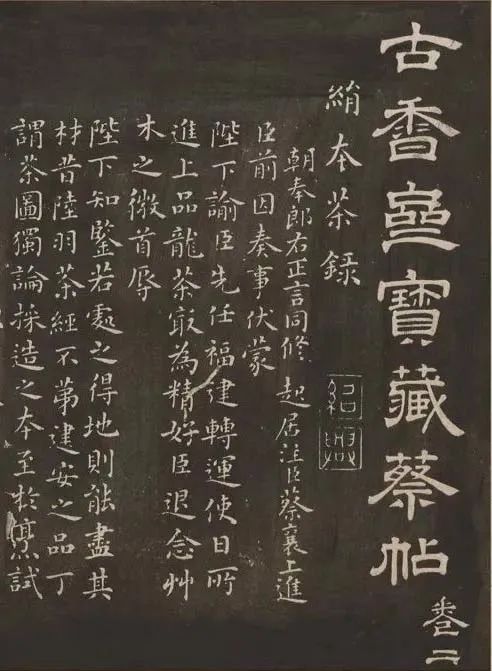 古香齋寶藏蔡帖
卷二
絹本茶錄
紹興
朝奉郎右正言同修 起居注臣蔡襄上進
臣前因奏事伏蒙
陛下諭臣先任福建轉運使日所
進上品龍茶㝡為精好臣退念艸
木之微首辱
陛下知鑒若處之得地則能盡其
材昔陸羽茶經不第建安之品丁
謂茶圖獨論採造之本至於烹試